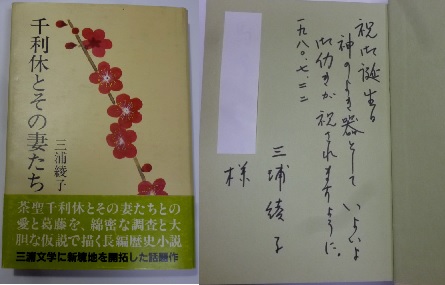 千利休とその妻たち
三浦綾子
茶聖千利休とその妻たちとの
愛と葛藤を、綿密な調査と大
胆な仮説で描く長編歴史小説
三浦文学に新境地を開拓した話題作
祝御誕生日
神のよき器として いよいよ
御働きが祝されますように。
一九八〇、七、二二
三浦綾子
様